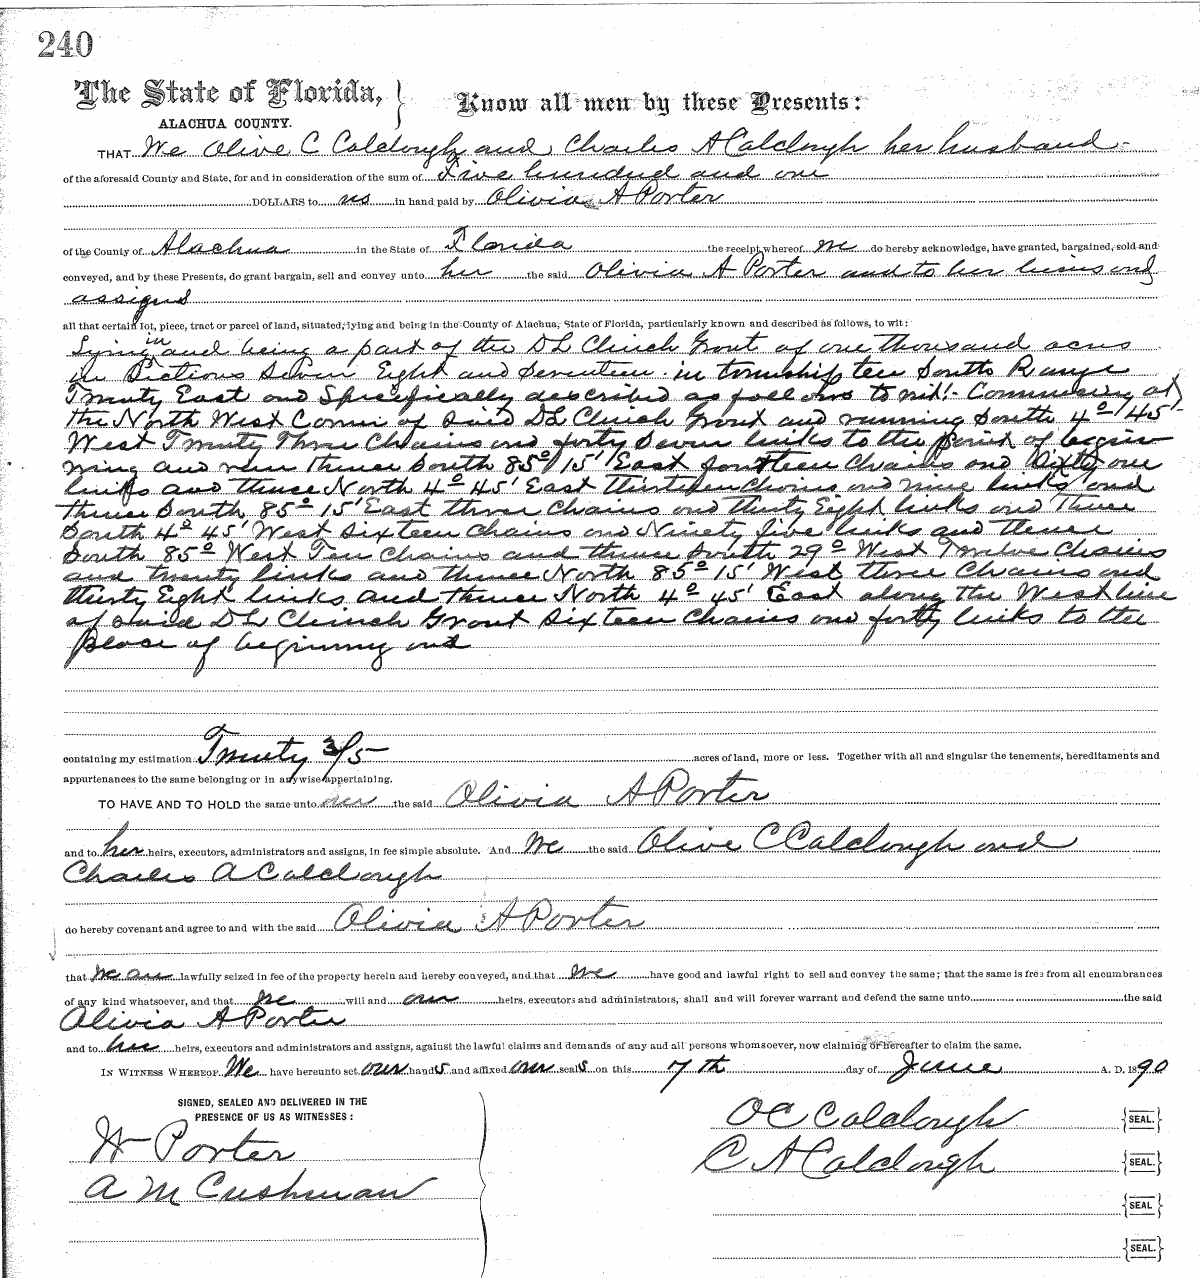 240
The State of Florida,
ALACHUA COUNTY.
Know all men by these Presents:
THAT We Olive C Colclough and Charles A Colclough her husband -
of the aforesaid County and State, for and in consideration of the sum of Five hundred and one
DOLLARS to us in hand paid by Olivia A Porter
of the County of Alachua in the State of Florida the receipt whereof we do hereby acknowledge, have granted, bargained, sold and
conveyed, and by these Presents, do grant bargain, sell and convey unto her the said Olivia A Porter and to her heirs and
assigns
all that certain lot, piece, tract or parcel of land, situated, lying and being in the County of Alachua, State of Florida, particularly known and described as follows, to wit:
Lying in and being a part of the DL Clinch Grant of one thousand acres
in Sections Seven Eight and Seventeen in township ten South Range
Twenty East and Specifically described as follows to wit:- Commencing at
the North West Corner of Said DL Clinch Grant and running South 4° 45'
West Twenty Three Chains and forty Seven links to the point of begin
ning and run thence South 85° 15' East fourteen Chains and Sixty one
links and thence North 4° 45' East thirteen Chains and nine links and
thence South 85° 15' East three Chains and thirty Eight links and Thence
South 4° 45' West Sixteen Chains and Ninety five links and thence
South 85° West Ten Chains and thence South 29° West Twelve Chains
and twenty links and thence North 85° 15' West three Chains and
thirty Eight links and thence North 4° 45' East along the West line
of Said DL Clinch Grant Sixteen Chains and forty links to the
place of beginning and
containing my estimation Twenty 3/5 acres of land, more or less. Together with all and singular the tenements, hereditaments and
appurtenances to the same belonging or in anywise appertaining.
TO HAVE AND TO HOLD the same unto her the said Olivia A Porter
and to her heirs, executors, administrators and assigns, in fee simple absolute. And We the said Olive C Colclough and
Charles A Colclough
do hereby covenant and agree to and with the said Olivia A Porter
that we are lawfully seized in fee of the property herein and hereby conveyed, and that we have good and lawful right to sell and convey the same; that the same is free from all encumbrances
of any kind whatsoever, and that we will and our heirs, executors and administrators, shall and will forever warrant and defend the same unto the said
Olivia A Porter
and to her heirs, executors and administrators and assigns, against the lawful claims and demands of any and all persons whomsoever, now claiming or hereafter to claim the same.
IN WITNESS WHEREOF We have hereunto set our hands and affixed our seals on this 7th day of June A. D. 1890
SIGNED, SEALED AND DELIVERED IN THE
PRESENCE OF US AS WITNESSES:
W Porter
A M Cushman
OC Colclough SEAL.
C A Colclough SEAL.
SEAL.
SEAL.